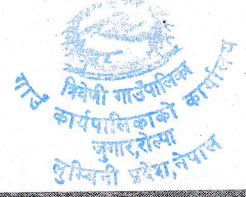 त्रिवेणी गाउँपालिका
गाउँ कार्यपालिकाको कार्यालय
जुगार, रोल्पा
लुम्बिनी प्रदेश, नेपाल